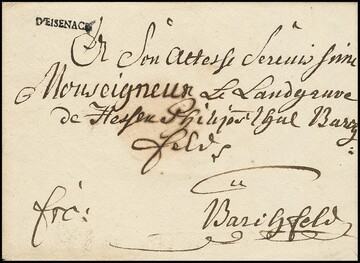 D'EISENAC
A Son Altesse Serenissime
Monseigneur Le Landgrave
de Hessen Philips thal Barch
felds
a
Barchfeld
frc: